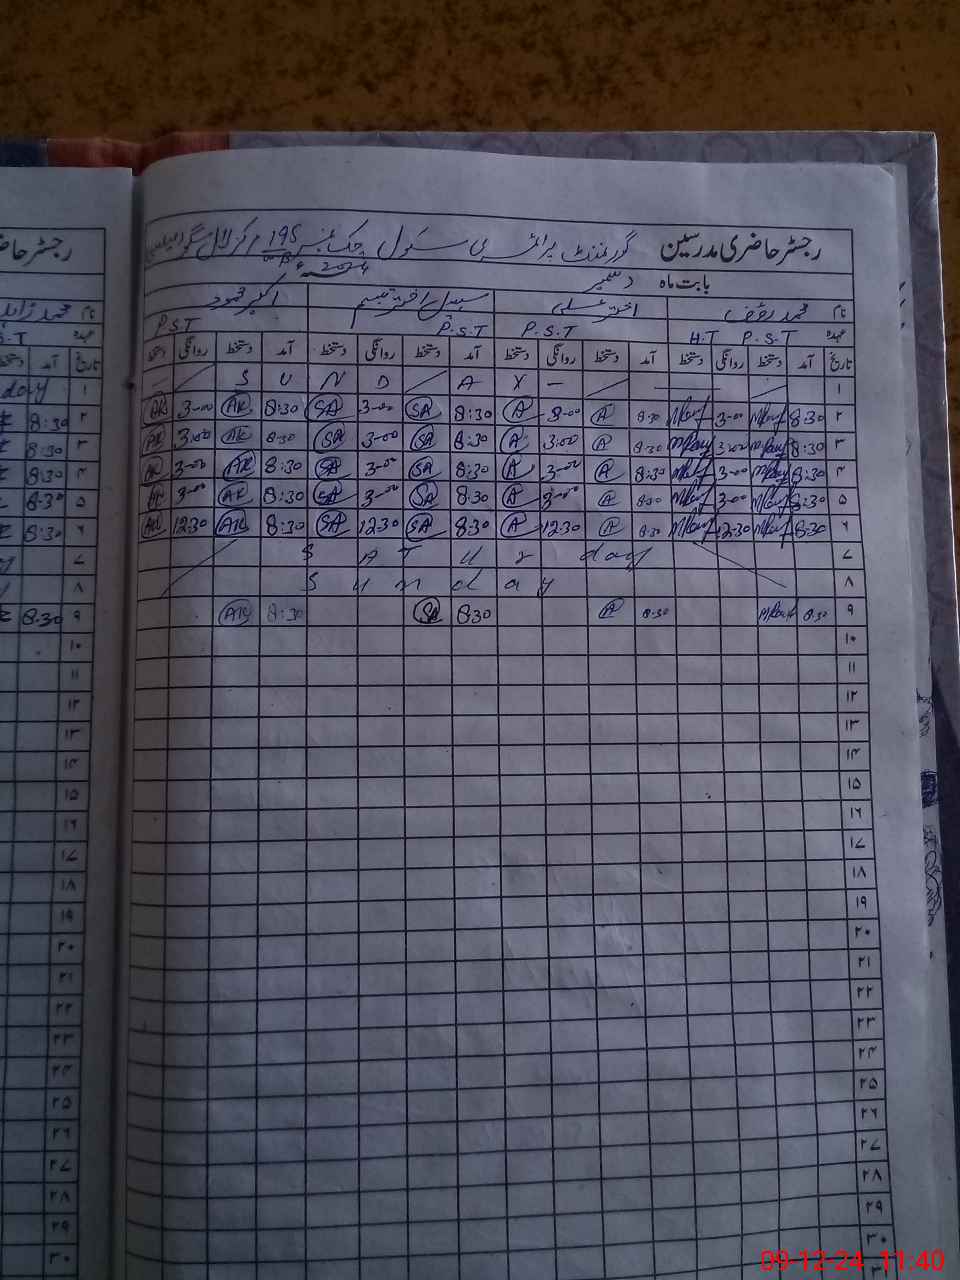 رجسٹر حاضری مدرسین گورنمنٹ پرائمری سکول چک نمبر 195
بابت ماہ دسمبر 2024ء
نام محمد رؤف اختر علی اکبر محمود
عہدہ P.S.T H.T P.S.T P.S.T P.S.T
تاریخ آمد دستخط روانگی دستخط آمد دستخط روانگی دستخط آمد دستخط روانگی دستخط آمد دستخط روانگی دستخط
۱ — S U N D A Y —
۲ 8:30 3-00 8:30 A 3-00 A 8:30 SA 3-00 SA 8:30 AK 3-00 AK
۳ 8:30 3-00 8:30 A 3:00 A 8:30 SA 3-00 SA 8:30 AK 3:00 AK
۴ 8:30 3-00 8:30 A 3-00 A 8:30 SA 3-00 SA 8:30 AK 3-00 AK
۵ 8:30 3-00 8:30 A 3-00 A 8:30 SA 3-00 SA 8:30 AK 3-00 AK
۶ 8:30 12:30 8:30 A 12:30 A 8:30 SA 12:30 SA 8:30 AK 12:30 AK
۷ S A T U r day
۸ S u n d a y
۹ 8:30 8:30 A 8:30 SA 8:30 AK
۱۰
۱۱
۱۲
۱۳
۱۴
۱۵
۱۶
۱۷
۱۸
۱۹
۲۰
۲۱
۲۲
۲۳
۲۴
۲۵
۲۶
۲۷
۲۸
۲۹
۳۰
رجسٹر حاضر
نام محمد زاہد
S.T
تاریخ آمد
۱ day
۲ 8:30
۳ 8:30
۴ 8:30
۵ 8:30
۶ 8:30
۷
۸
۹ 8:30
۱۰
۱۱
۱۲
۱۳
۱۴
۱۵
۱۶
۱۷
۱۸
۱۹
۲۰
۲۱
۲۲
۲۳
۲۴
۲۵
۲۶
۲۷
۲۸
۲۹
۳۰
09-12-24 11:40